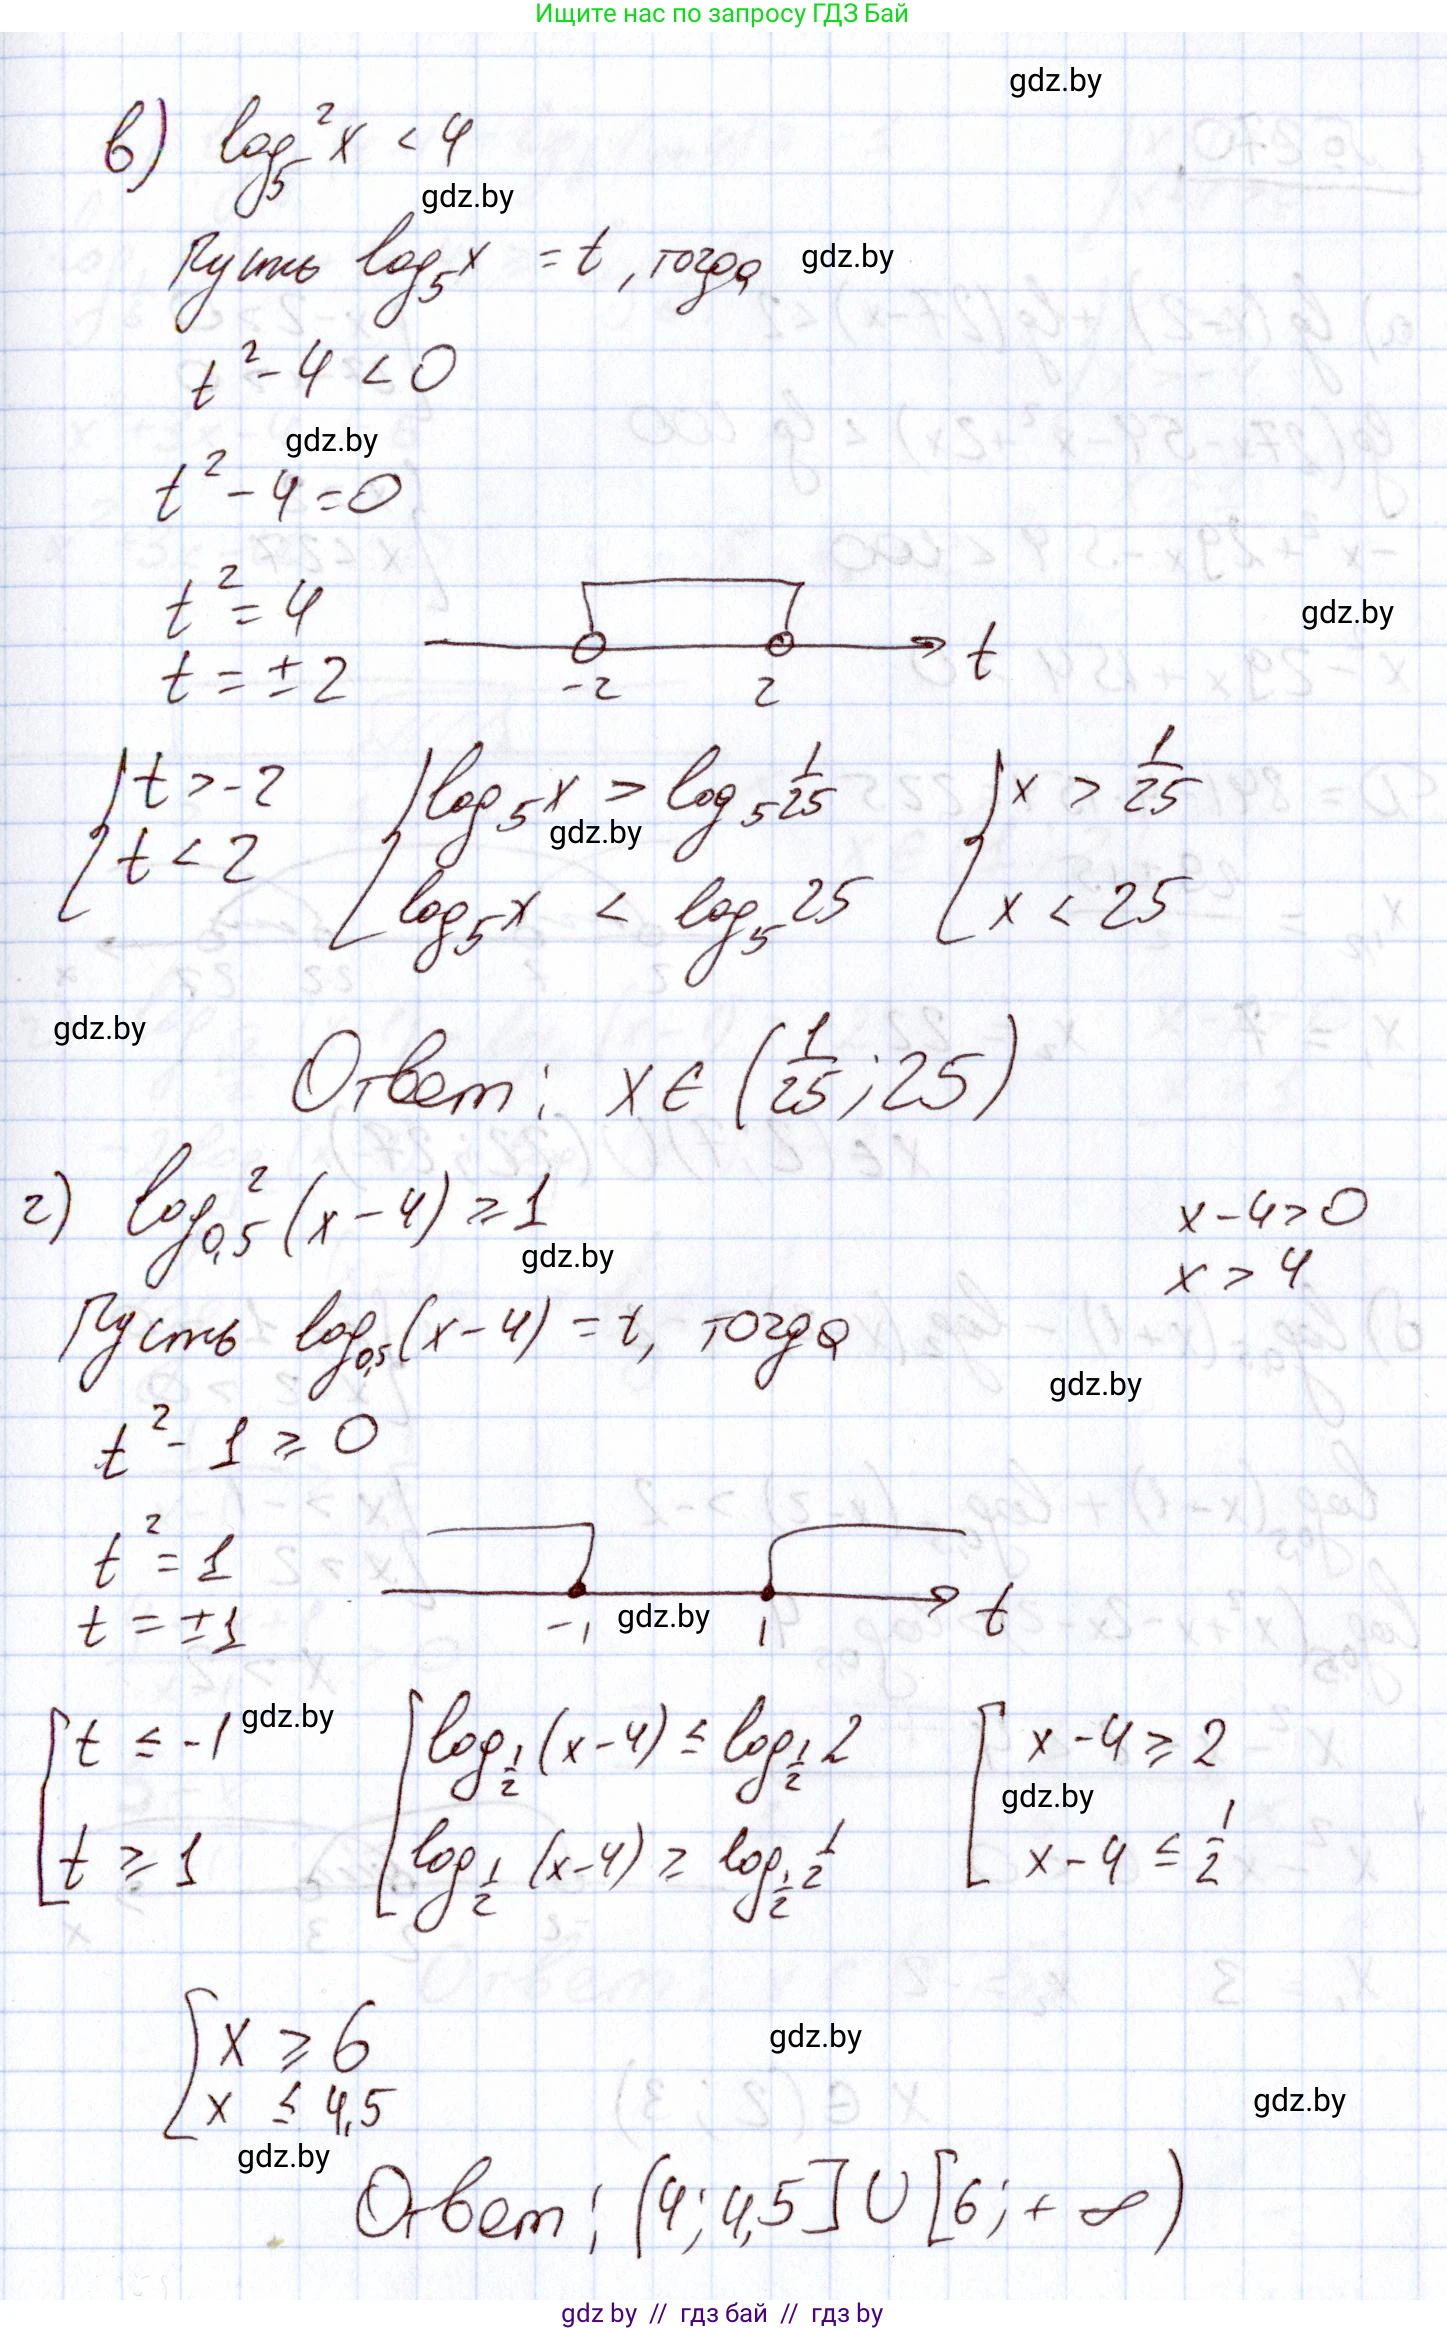 Ищите нас по запросу ГДЗ Бай
gdz.by
в) log₅²x < 4
gdz.by
Пусть log₅x = t, тогда gdz.by
t² - 4 < 0
gdz.by
t² - 4 = 0
t² = 4
gdz.by
t = ± 2
-2 2 t
{ t > -2 { log₅x > log₅ 1/25 { x > 1/25
gdz.by
t < 2 log₅x < log₅ 25 x < 25
gdz.by
Ответ: x ∈ (1/25; 25)
г) log₀,₅² (x - 4) ≥ 1 x - 4 > 0
gdz.by
x > 4
Пусть log₀,₅(x - 4) = t, тогда
gdz.by
t² - 1 ≥ 0
t² = 1
t = ± 1
-1 gdz.by 1 t
[ t ≤ -1 gdz.by [ log_1/2 (x - 4) ≤ log_1/2 2 [ x - 4 ≥ 2
gdz.by
t ≥ 1 log_1/2 (x - 4) ≥ log_1/2 1/2 x - 4 ≤ 1/2
[ x ≥ 6
gdz.by
x ≤ 4,5
gdz.by
gdz.by
Ответ: (4; 4,5] ∪ [6; + ∞)
gdz by // гдз бай // гдз by